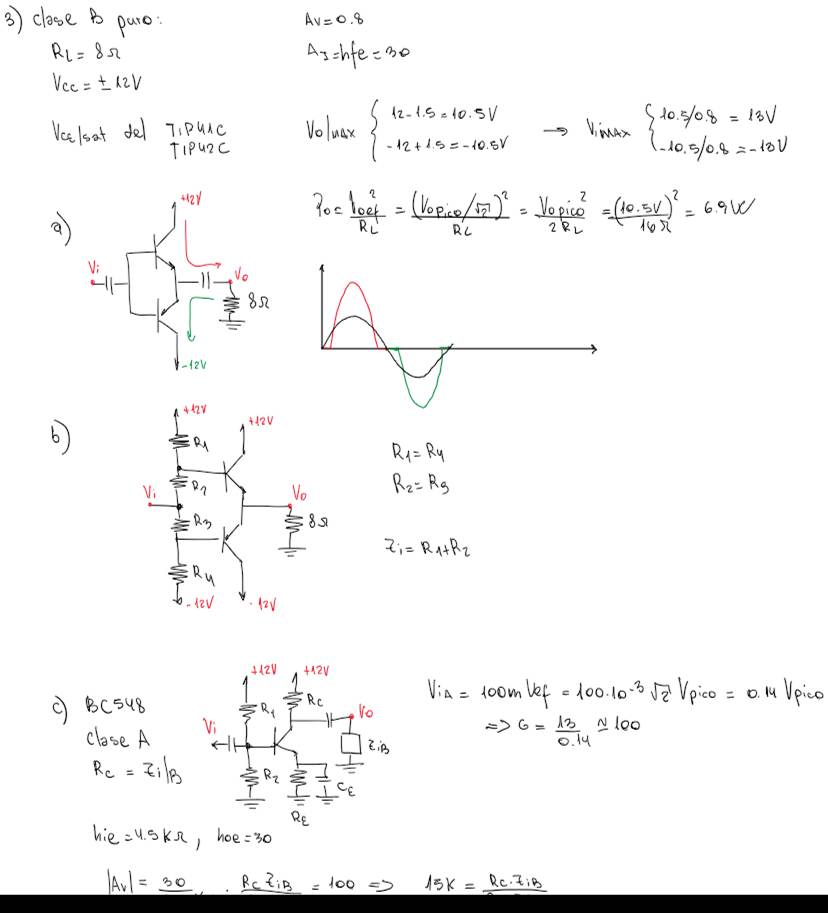 3) clase B puro:
Av = 0.8
RL = 8Ω
AI = hfe = 30
Vcc = ± 12V
Vce/sat del TIP41C
TIP42C
Vo/max { 12 - 1.5 = 10.5V
-12 + 1.5 = -10.5V
→ Vimax { 10.5/0.8 = 13V
-10.5/0.8 = -13V
Po = Voef² / RL = (Vopico/√2)² / RL = Vopico² / 2RL = (10.5V)² / 16Ω = 6.9W
a)
+12V
Vi
Vo
8Ω
-12V
b)
+12V
+12V
R1
R2
Vi
Vo
R3
8Ω
R4
-12V
-12V
R1 = R4
R2 = R3
Zi = R1 + R2
c) BC548
clase A
Rc = Zi/B
+12V
+12V
R1
Rc
Vi
Vo
ZiB
R2
CE
RE
ViA = 100m Vef = 100.10⁻³ √2 Vpico = 0.14 Vpico
=> G = 13 / 0.14 ≈ 100
hie = 4.5KΩ, hoe = 30
|Av| = 30 . Rc ZiB = 100 => 15K = Rc.ZiB